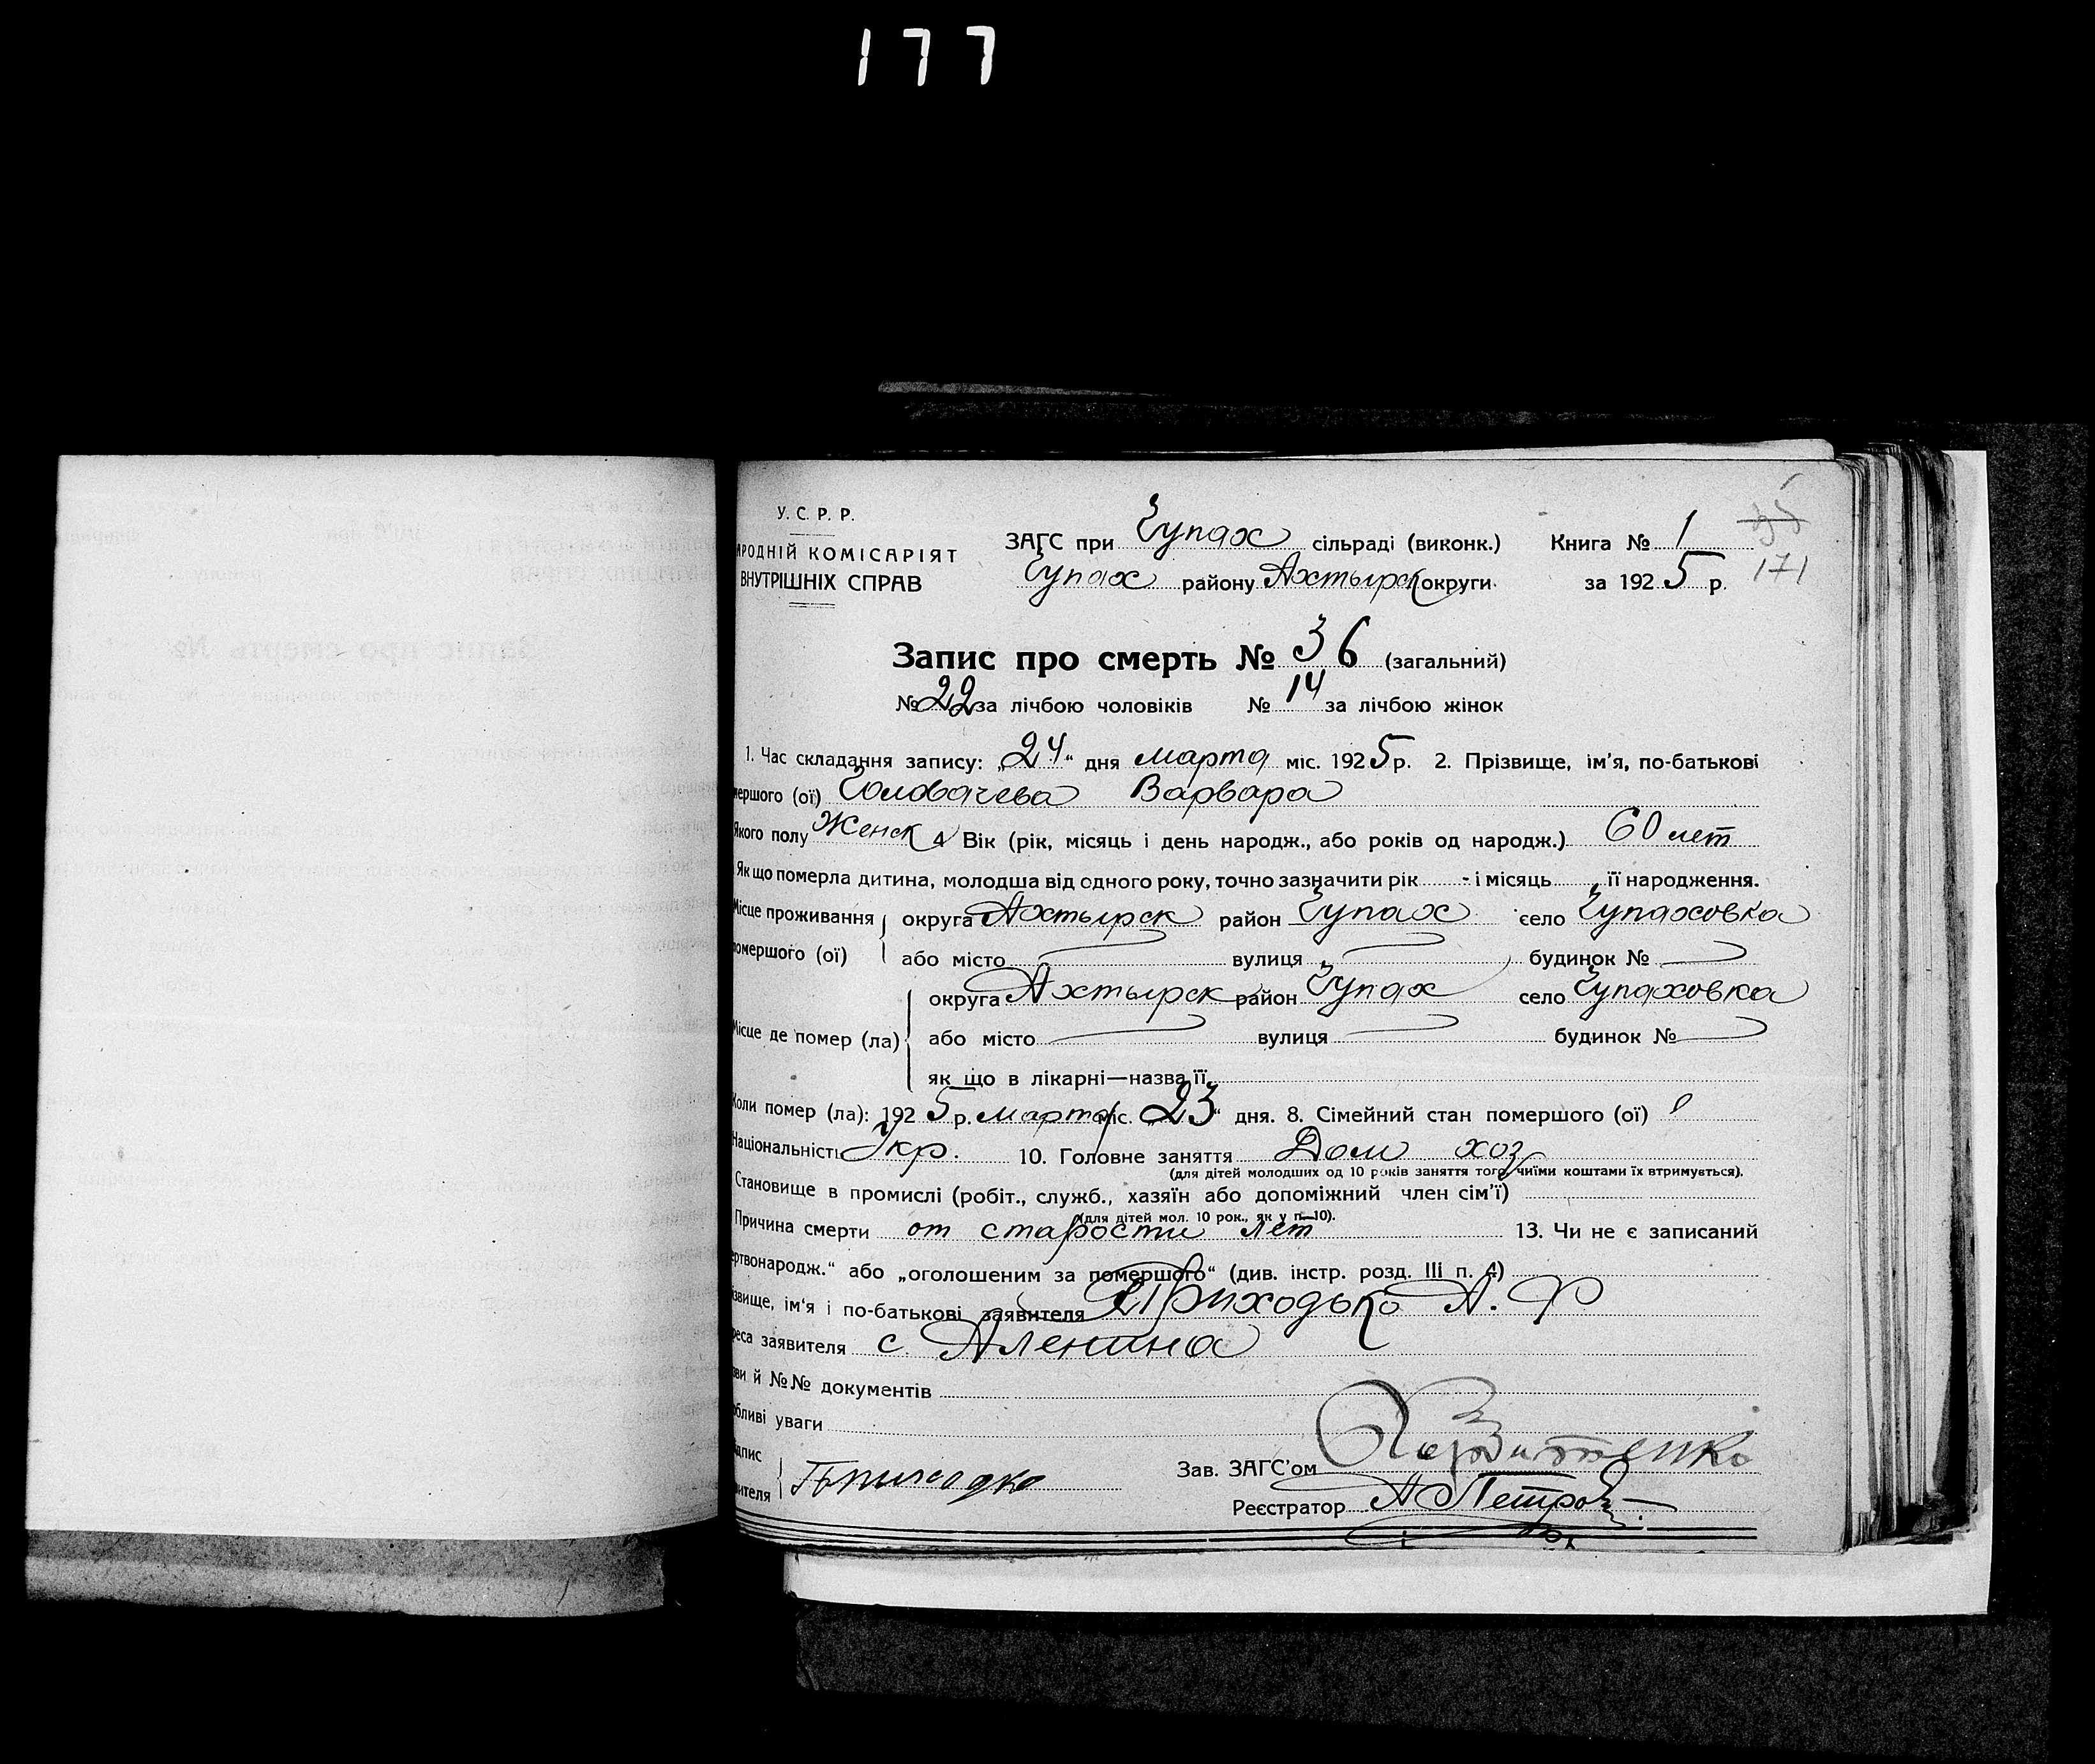 177
У. С. Р. Р.
АРОДНІЙ КОМІСАРІЯТ
ВНУТРІШНІХ СПРАВ
ЗАГС при Чупах сільраді (виконк.) Книга № 1
Чупах району Ахтырск округи за 1925 р.
171
Запис про смерть № 36 (загальний)
№ 22 за лічбою чоловіків № 14 за лічбою жінок
1. Час складання запису: „24“ дня марта міс. 1925 р. 2. Прізвище, ім’я, по-батькові
мершого (ої) Соловачева Варвара
Якого полу Женск 4 Вік (рік, місяць і день народж., або років од народж.) 60 лет
Як що померла дитина, молодша від одного року, точно зазначити рік - і місяць її народження.
Місце проживання округа Ахтырск район Чупах село Чупаховка
помершого (ої) або місто вулиця будинок №
округа Ахтырск район Чупах село Чупаховка
Місце де помер (ла) або місто вулиця будинок №
як що в лікарні—назва її
Коли помер (ла): 1925 р. марта міс. „23“ дня. 8. Сімейний стан помершого (ої)
Національність Укр. 10. Головне заняття Дом хоз
(для дітей молодших од 10 років заняття того, чиїми коштами їх втримується).
Становище в промислі (робіт., служб., хазяїн або допоміжний член сім’ї)
(для дітей мол. 10 рок., як у п. 10).
Причина смерти от старости лет 13. Чи не є записаний
ертвонародж.“ або „оголошеним за помершого“ (див. інстр. розд. III п. 4)
ізвище, ім’я і по-батькові заявителя Приходько А. Ф
реса заявителя с. Аленина
ви й №№ документів
обливі уваги
ідпис
вителя Приходко
Зав. ЗАГС’ом
Реєстратор А Петров